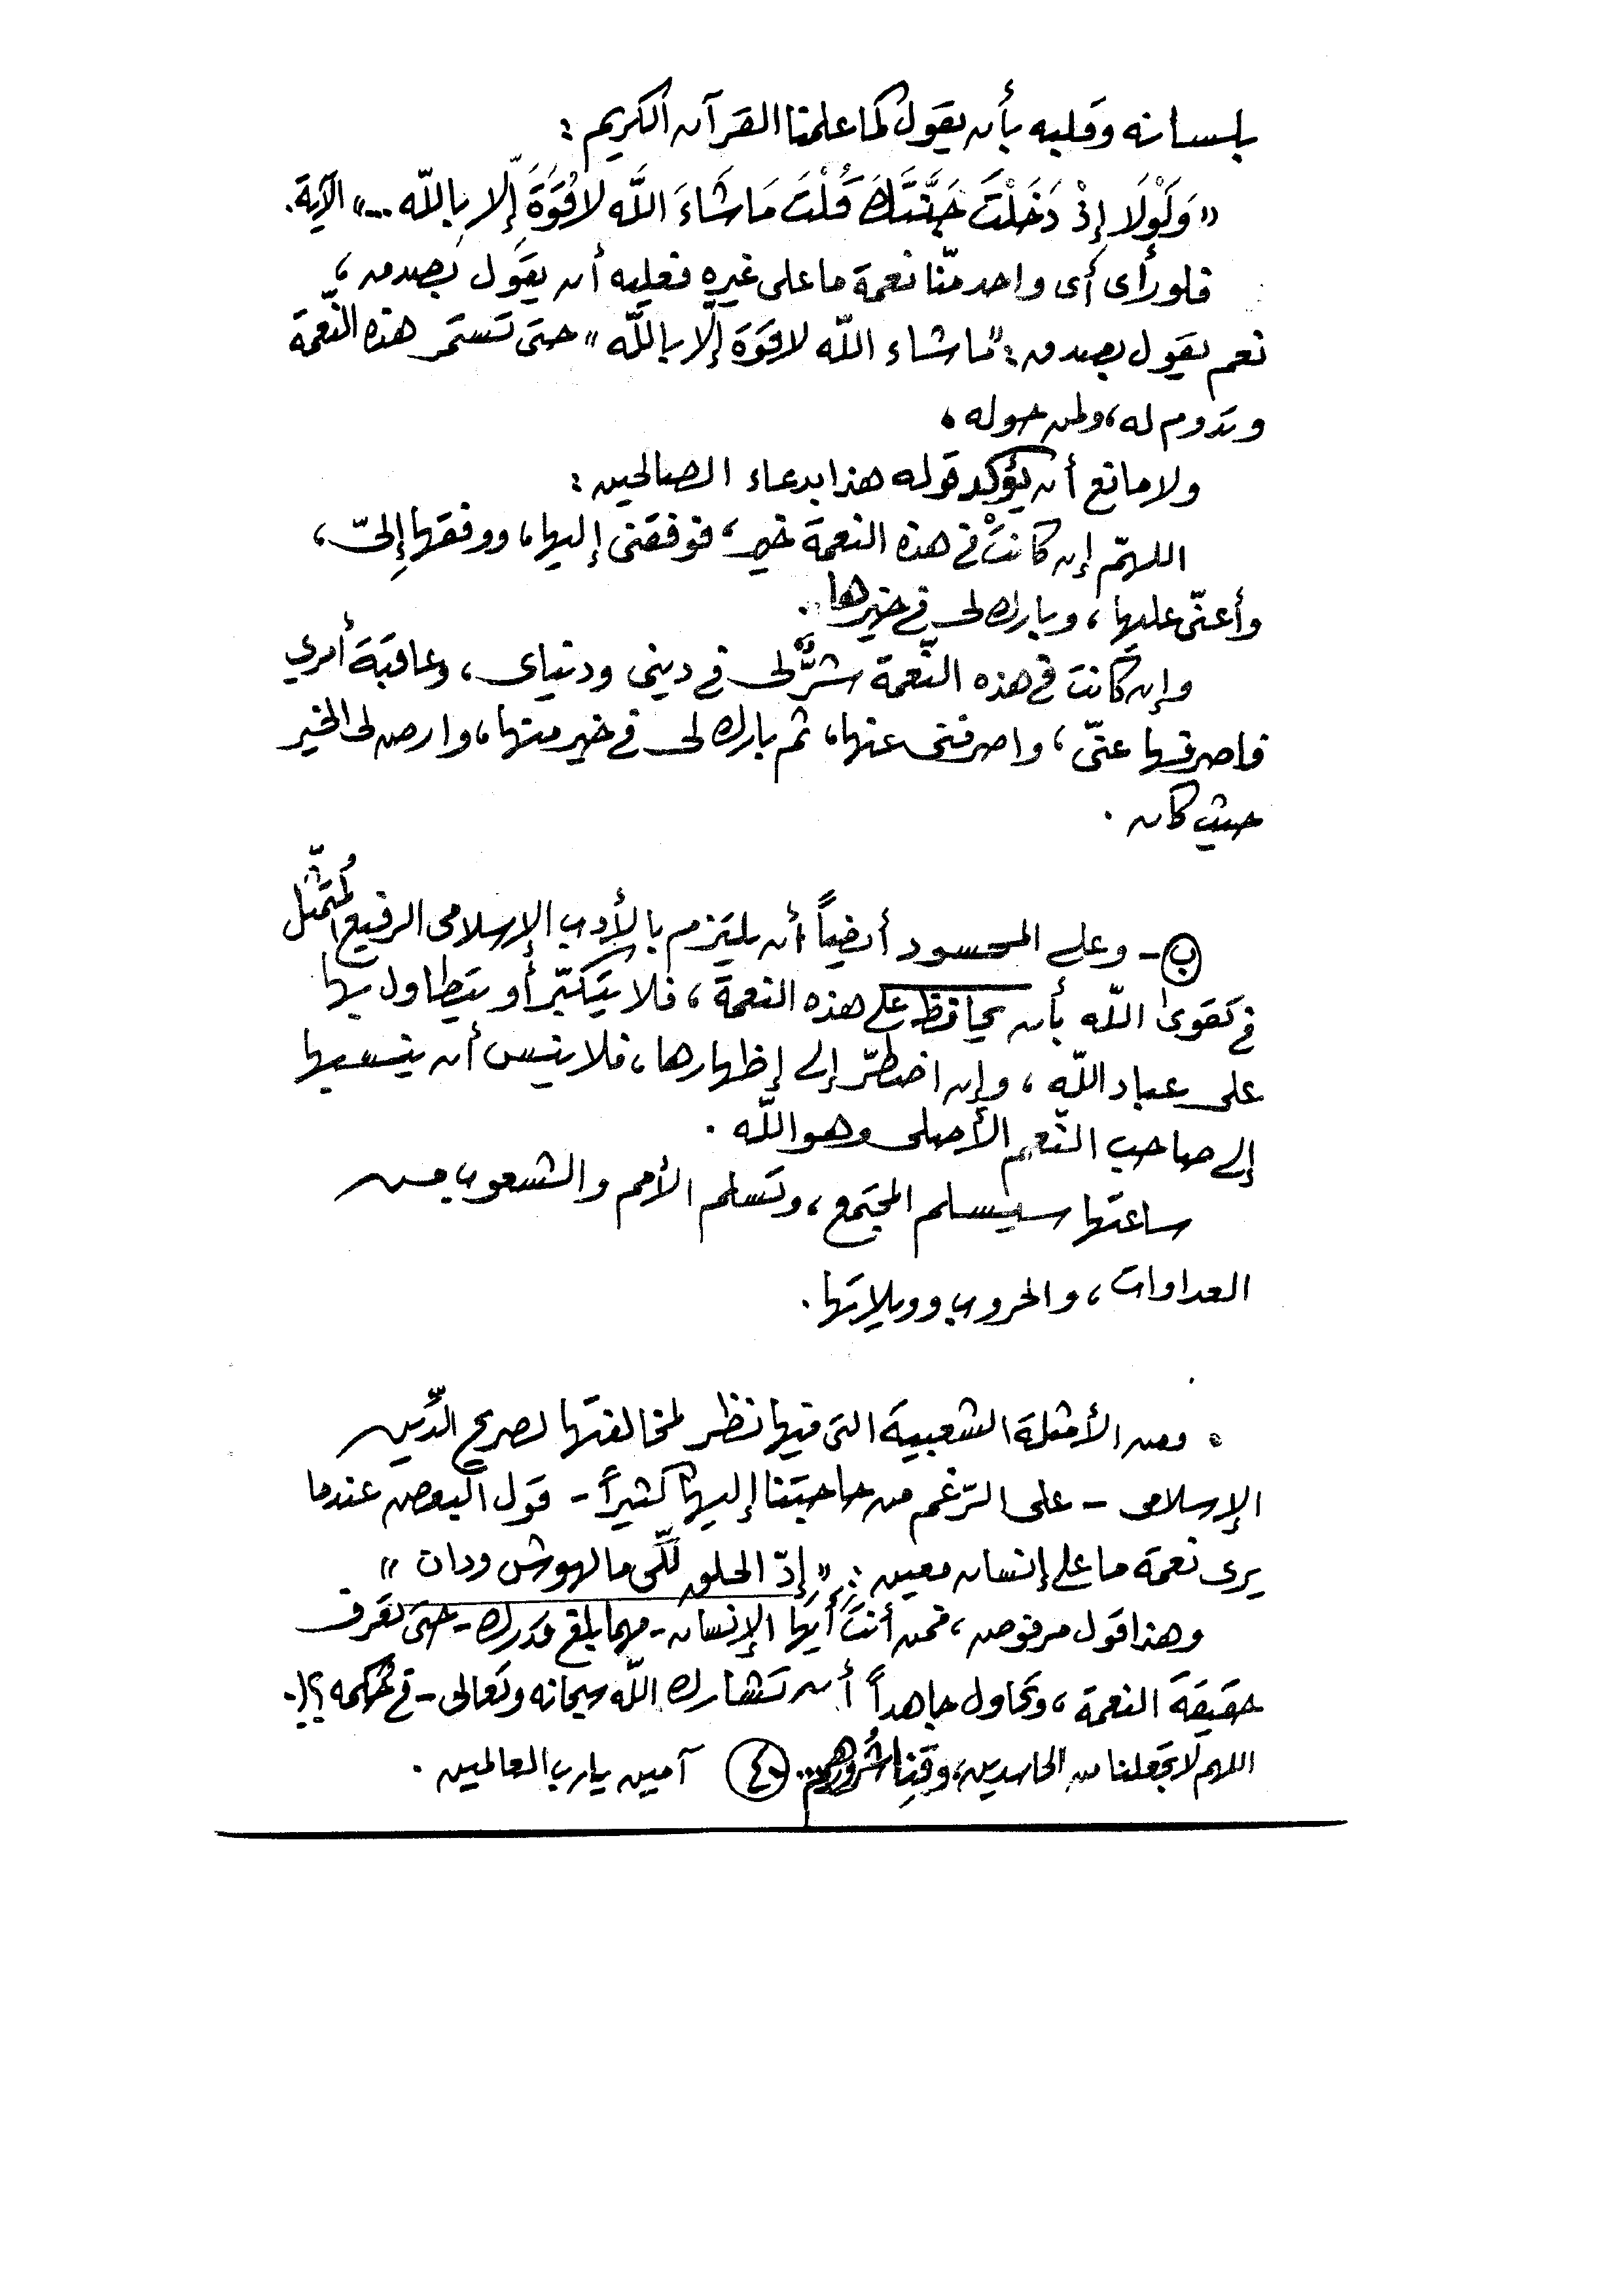 بلسانه وقلبه بأن يقول كما علمنا القرآن الكريم :
« وَلَوْلَا إِذْ دَخَلْتَ جَنَّتَكَ قُلْتَ مَا شَاءَ اللَّه لَا قُوَّةَ إِلّا بِاللّه ... » الآية .
فلو رأى أى واحد منّا نعمة ما على غيره فعليه أن يقول بصدق ،
نعم يقول بصدق : "ما شاء اللّه لا قوّة إلّا باللّه" حتى تستمر هذه النّعمة
وتدوم له ، ولمن حوله ،
ولا مانع أن يؤكد قوله هذا بدعاء الصالحين :
اللهمّ إن كانتْ في هذه النعمة خير ، فوفقنى إليها ، ووفقها إلىّ ،
وأعنّى عليها ، وبارك لى في خيرها .
وإن كانت في هذه النّعمة شرٌّ لى في دينى ودنياى ، وعاقبة أمرى
فاصرفها عنّى ، واصرفنى عنها ، ثم بارك لى في خير منها ، وارض لى الخير
حيث كان .
ب - وعلى المحسود أيضاً أن يلتزم بالأدب الإسلامى الرفيع المُتمثّل
في تقوى اللّه بأن يحافظ على هذه النعمة ، فلا يتكبّر أو يتطاول بها
على عباد اللّه ، وإن اضطرّ إلى إظهارها ، فلا ينس أن ينسبها
إلى صاحب النّعم الأصلى وهو اللّه .
ساعتها سيسلم المجتمع ، وتسلم الأمم والشعوب من
العداوات ، والحروب وويلاتها .
• ومن الأمثلة الشعبية التى فيها نظر لمخالفتها لصريح الدِّين
الإسلامى - على الرّغم من حاجتنا إليها كثيراً - قول البعض عندما
يرى نعمة ما على إنسان معين : « إدّ الحلق للّى مالهوش ودان »
وهذا قول مرفوض ، فمن أنتَ أيها الإنسان - مهما بلغ قدرك - حتى تعرف
حقيقة النعمة ، وتحاول جاهداً أن تشارك اللّه سبحانه وتعالى - في حُكمه ؟!.
اللهم لا تجعلنا من الحاسدين ، وقِنا شُرورهم .. ٤٠ آمين يارب العالمين .